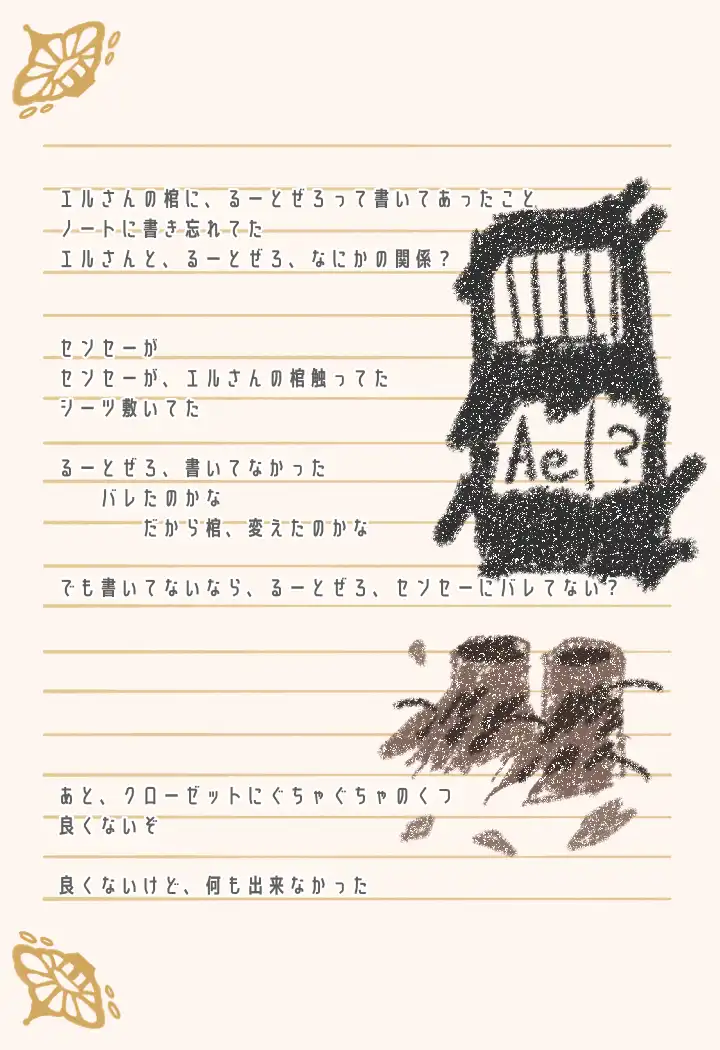 エルさんの棺に、るーとぜろって書いてあったこと
ノートに書き忘れてた
エルさんと、るーとぜろ、なにかの関係？
センセーが
センセーが、エルさんの棺触ってた
シーツ敷いてた
Ael?
るーとぜろ、書いてなかった
バレたのかな
だから棺、変えたのかな
でも書いてないなら、るーとぜろ、センセーにバレてない？
あと、クローゼットにぐちゃぐちゃのくつ
良くないぞ
良くないけど、何も出来なかった